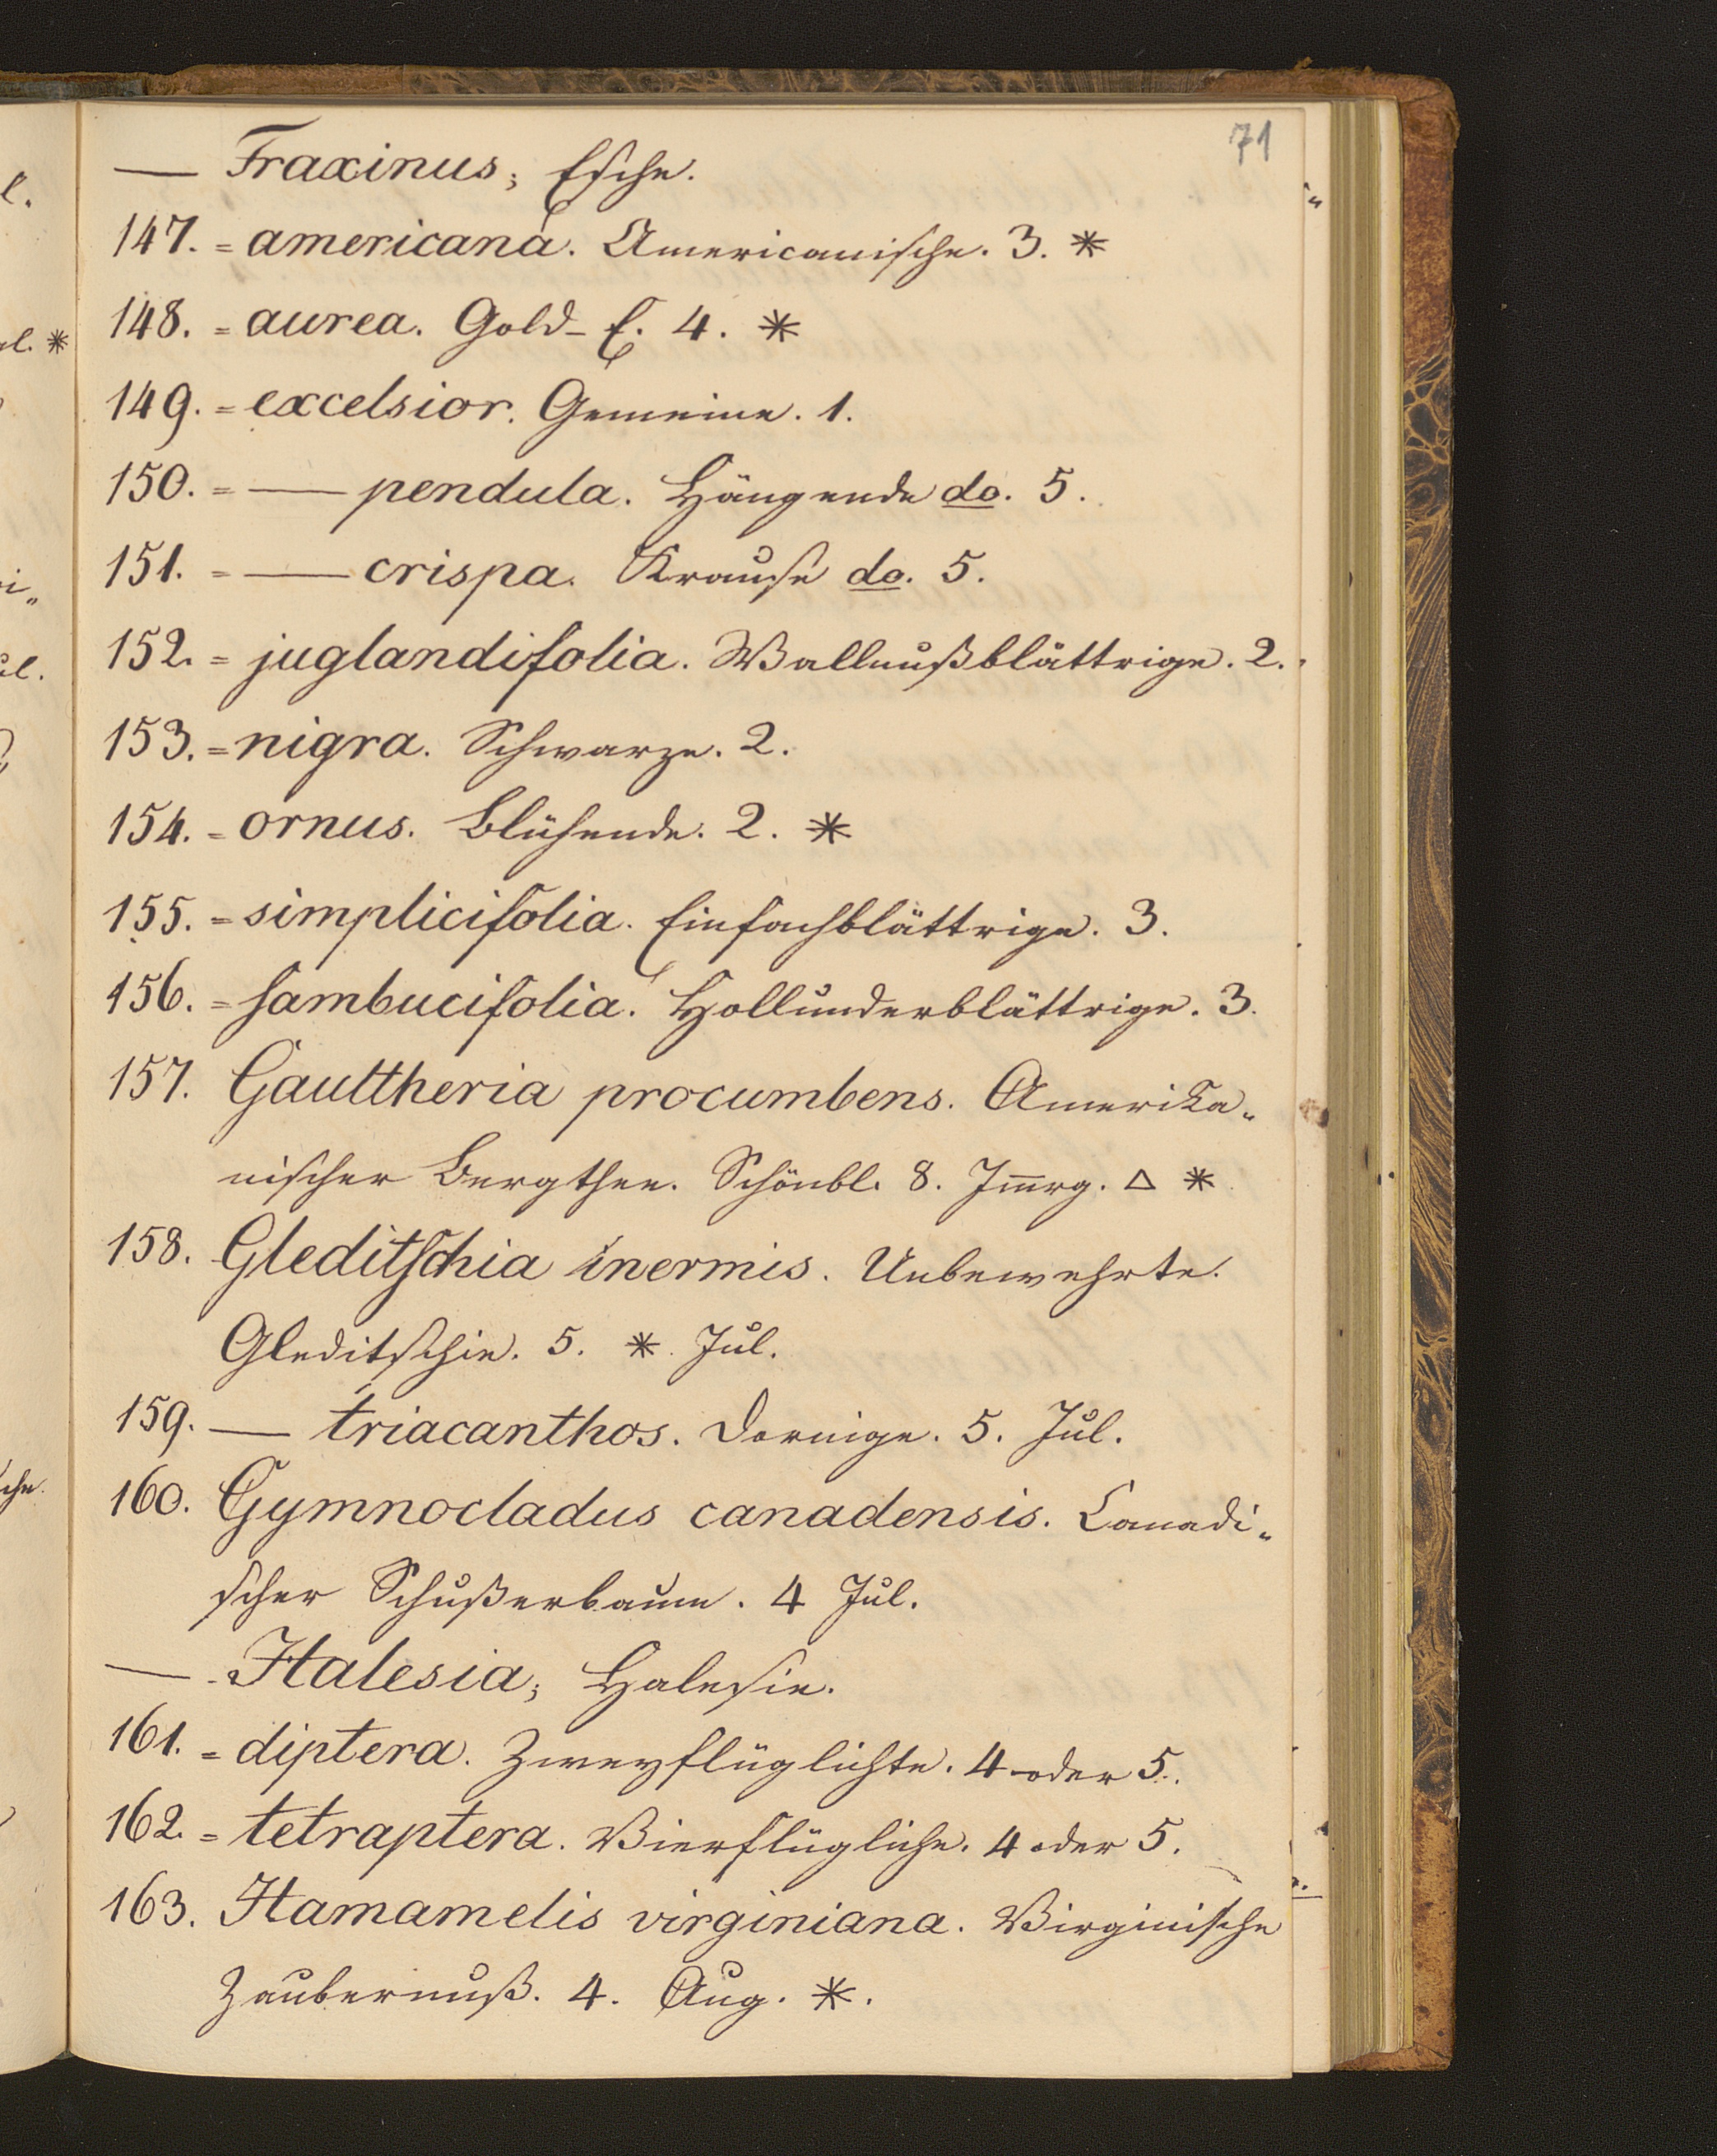 71
— Fraxinus; Esche.
147. = americana. Americanische. 3. *
148. = aurea. Gold-E. 4. *
149. = excelsior. Gemeine. 1.
150. = — pendula. Hängende do. 5.
151. = — crispa. Krause do. 5.
152. = juglandifolia. Wallnußblättrige. 2.
153. = nigra. Schwarze. 2.
154. = ornus. Blühende. 2. *
155. = simplicifolia. Einfachblättrige. 3.
156. = sambucifolia. Hollunderblättrige. 3.
157. Gaultheria procumbens. Amerika„
nischer Bergthee. Schönbl. 8. Im̅rg. △ *
158. Gleditschia inermis. Unbewehrte.
Gleditschie. 5. *. Jul.
159. — triacanthos. Dornige. 5. Jul.
160. Gymnocladus canadensis. Canadi„
scher Schußerbaum. 4 Jul.
— Halesia; Halesie.
161. = diptera. Zweyflüglichte. 4 oder 5.
162. = tetraptera. Vierflügliche. 4 oder 5.
163. Hamamelis virginiana. Virginische
Zaubernuß. 4. Aug. *.